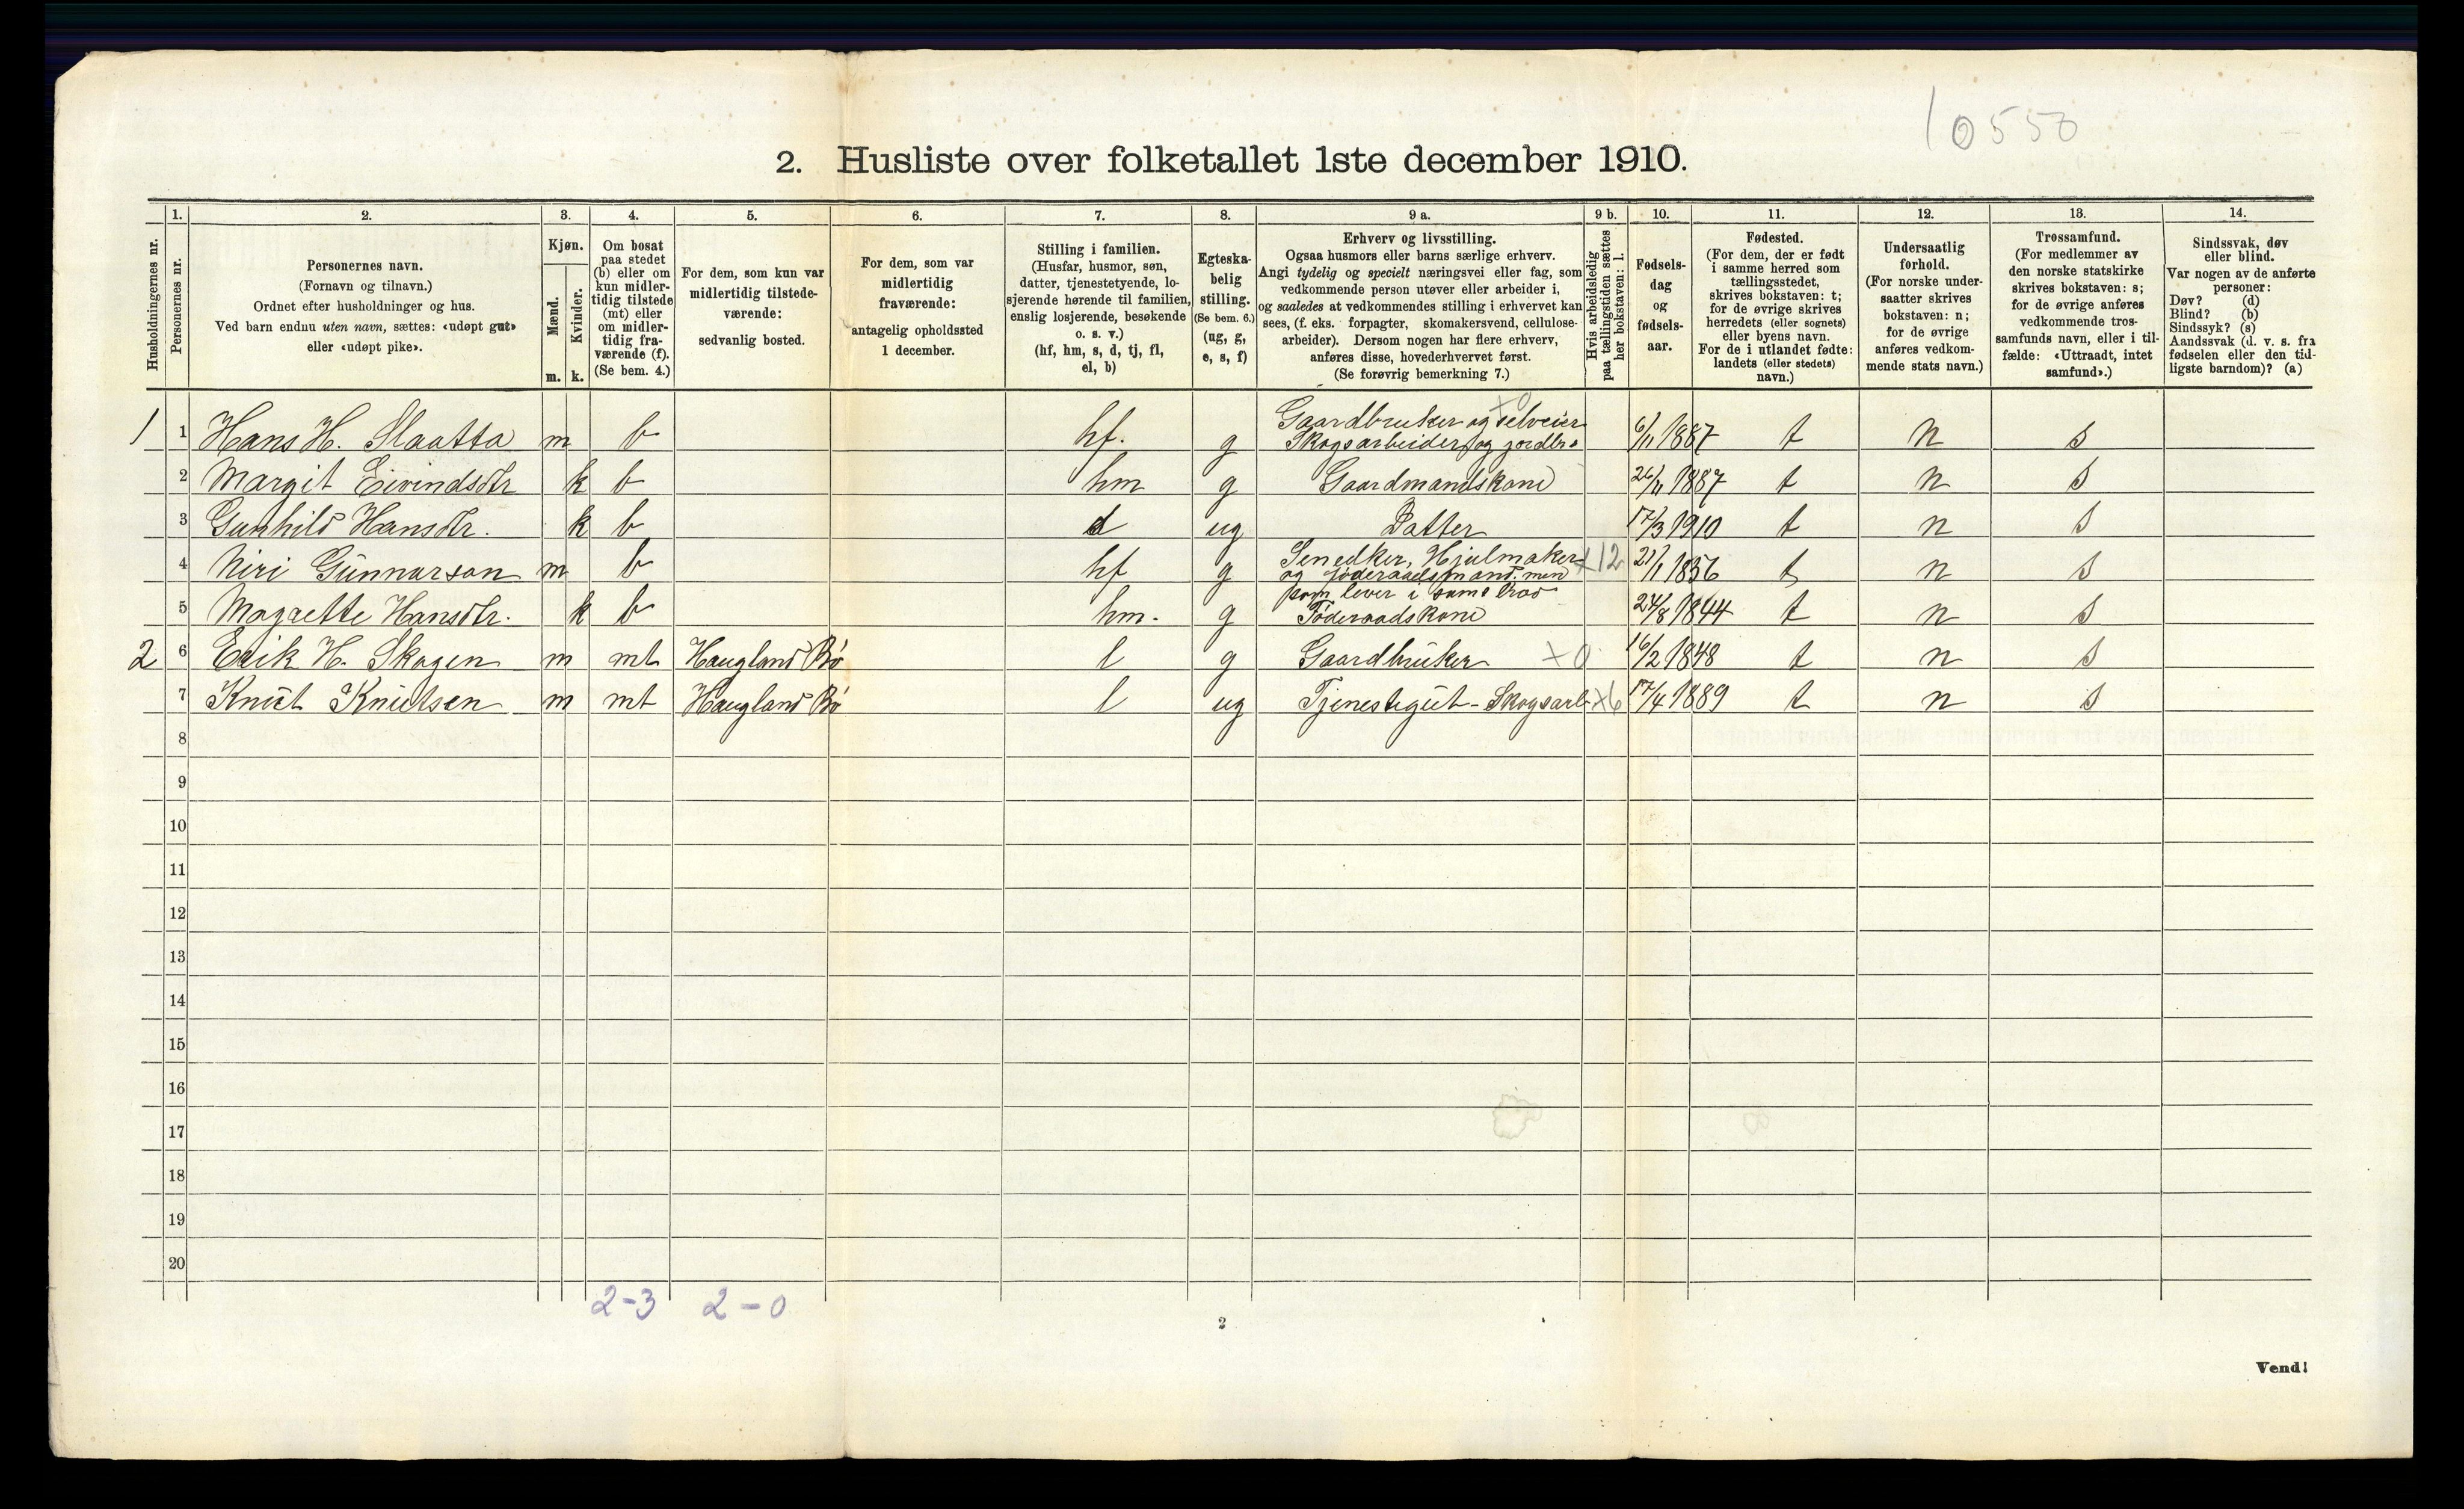 10550
2. Husliste over folketallet 1ste december 1910.
1. 2. 3. 4. 5. 6. 7. 8. 9 a. 9 b. 10. 11. 12. 13. 14.
Husholdningernes nr.
Personernes nr.
Personernes navn.
(Fornavn og tilnavn.)
Ordnet efter husholdninger og hus.
Ved barn endnu uten navn, sættes: «udøpt gut»
eller «udøpt pike».
Kjøn.
Mænd.
Kvinder.
m. k.
Om bosat
paa stedet
(b) eller om
kun midler-
tidig tilstede
(mt) eller
om midler-
tidig fra-
værende (f).
(Se bem. 4.)
For dem, som kun var
midlertidig tilstede-
værende:
sedvanlig bosted.
For dem, som var
midlertidig
fraværende:
antagelig opholdssted
1 december.
Stilling i familien.
(Husfar, husmor, søn,
datter, tjenestetyende, lo-
sjerende hørende til familien,
enslig losjerende, besøkende
o. s. v.)
(hf, hm, s, d, tj, fl,
el, b)
Egteska-
belig
stilling.
(Se bem. 6.)
(ug, g,
e, s, f)
Erhverv og livsstilling.
Ogsaa husmors eller barns særlige erhverv.
Angi tydelig og specielt næringsvei eller fag, som
vedkommende person utøver eller arbeider i,
og saaledes at vedkommendes stilling i erhvervet kan
sees, (f. eks. forpagter, skomakersvend, cellulose-
arbeider). Dersom nogen har flere erhverv,
anføres disse, hovederhvervet først.
(Se forøvrig bemerkning 7.)
Hvis arbeidsledig
paa tællingstiden sættes
her bokstaven: l.
Fødsels-
dag
og
fødsels-
aar.
Fødested.
(For dem, der er født
i samme herred som
tællingsstedet,
skrives bokstaven: t;
for de øvrige skrives
herredets (eller sognets)
eller byens navn.
For de i utlandet fødte:
landets (eller stedets)
navn.)
Undersaatlig
forhold.
(For norske under-
saatter skrives
bokstaven: n;
for de øvrige
anføres vedkom-
mende stats navn.)
Trossamfund.
(For medlemmer av
den norske statskirke
skrives bokstaven: s;
for de øvrige anføres
vedkommende tros-
samfunds navn, eller i til-
fælde: «Uttraadt, intet
samfund».)
Sindssvak, døv
eller blind.
Var nogen av de anførte
personer:
Døv? (d)
Blind? (b)
Sindssyk? (s)
Aandssvak (d. v. s. fra
fødselen eller den tid-
ligste barndom)? (a)
+0
Gaardbruker og selveier
1 1 Hans H. Slaatta m b hf. g Skogsarbeider og jordbr. 6/11 1887 t n s
2 Margit Eivindsdtr k b hm g Gaardmandskone 26/11 1887 t n s
3 Gunhild Hansdtr. k b d ug Datter 17/3 1910 t n s
Snedker, Hjulmaker +12
4 Niri Gunnarson m b hf g og føderaadsmand men 21/1 1856 t n s
som lever i samme brød
5 Magrette Hansdtr. k b hm. g Føderaadskone 24/8 1844 t n s
2 6 Erik H. Skogen m mt Haugland Bø l g Gaardbruker +0 16/2 1848 t n s
7 Knut Knutsen m mt Haugland Bø l ug Tjenestegut - Skogsarb +6 17/4 1889 t n s
8
9
10
11
12
13
14
15
16
17
18
19
20
2-3 2-0
2
Vend!